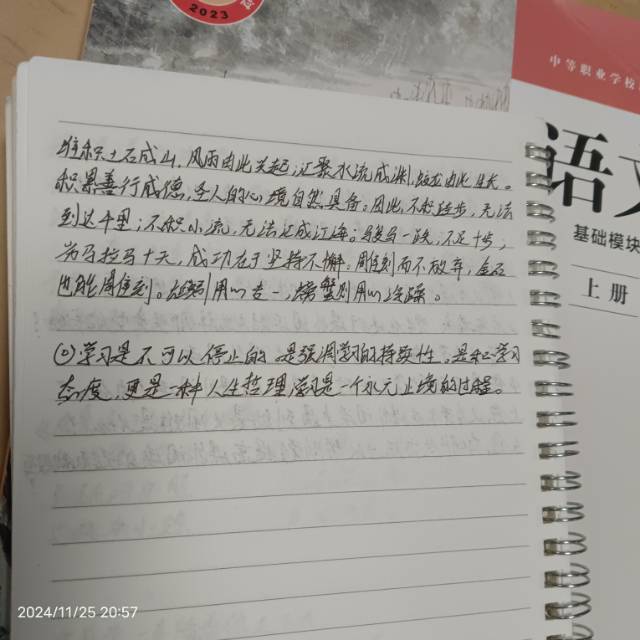 2023
中等职业学校
语文
基础模块
上册
堆积土石成山，风雨由此兴起；汇聚水流成渊，蛟龙由此生长。
积累善行成德，圣人的心境自然具备。因此，不积跬步，无法
到达千里；不积小流，无法汇成江海。骏马一跃，不足十步，
驽马拉马十天，成功在于坚持不懈。雕刻而不放弃，金石
也能雕刻。蚯蚓用心专一，螃蟹则用心浮躁。
学习是不可以停止的 是强调学习的持续性，是和学习
态度，更是一种人生哲理，学习是一个永无止境的过程。
2024/11/25 20:57